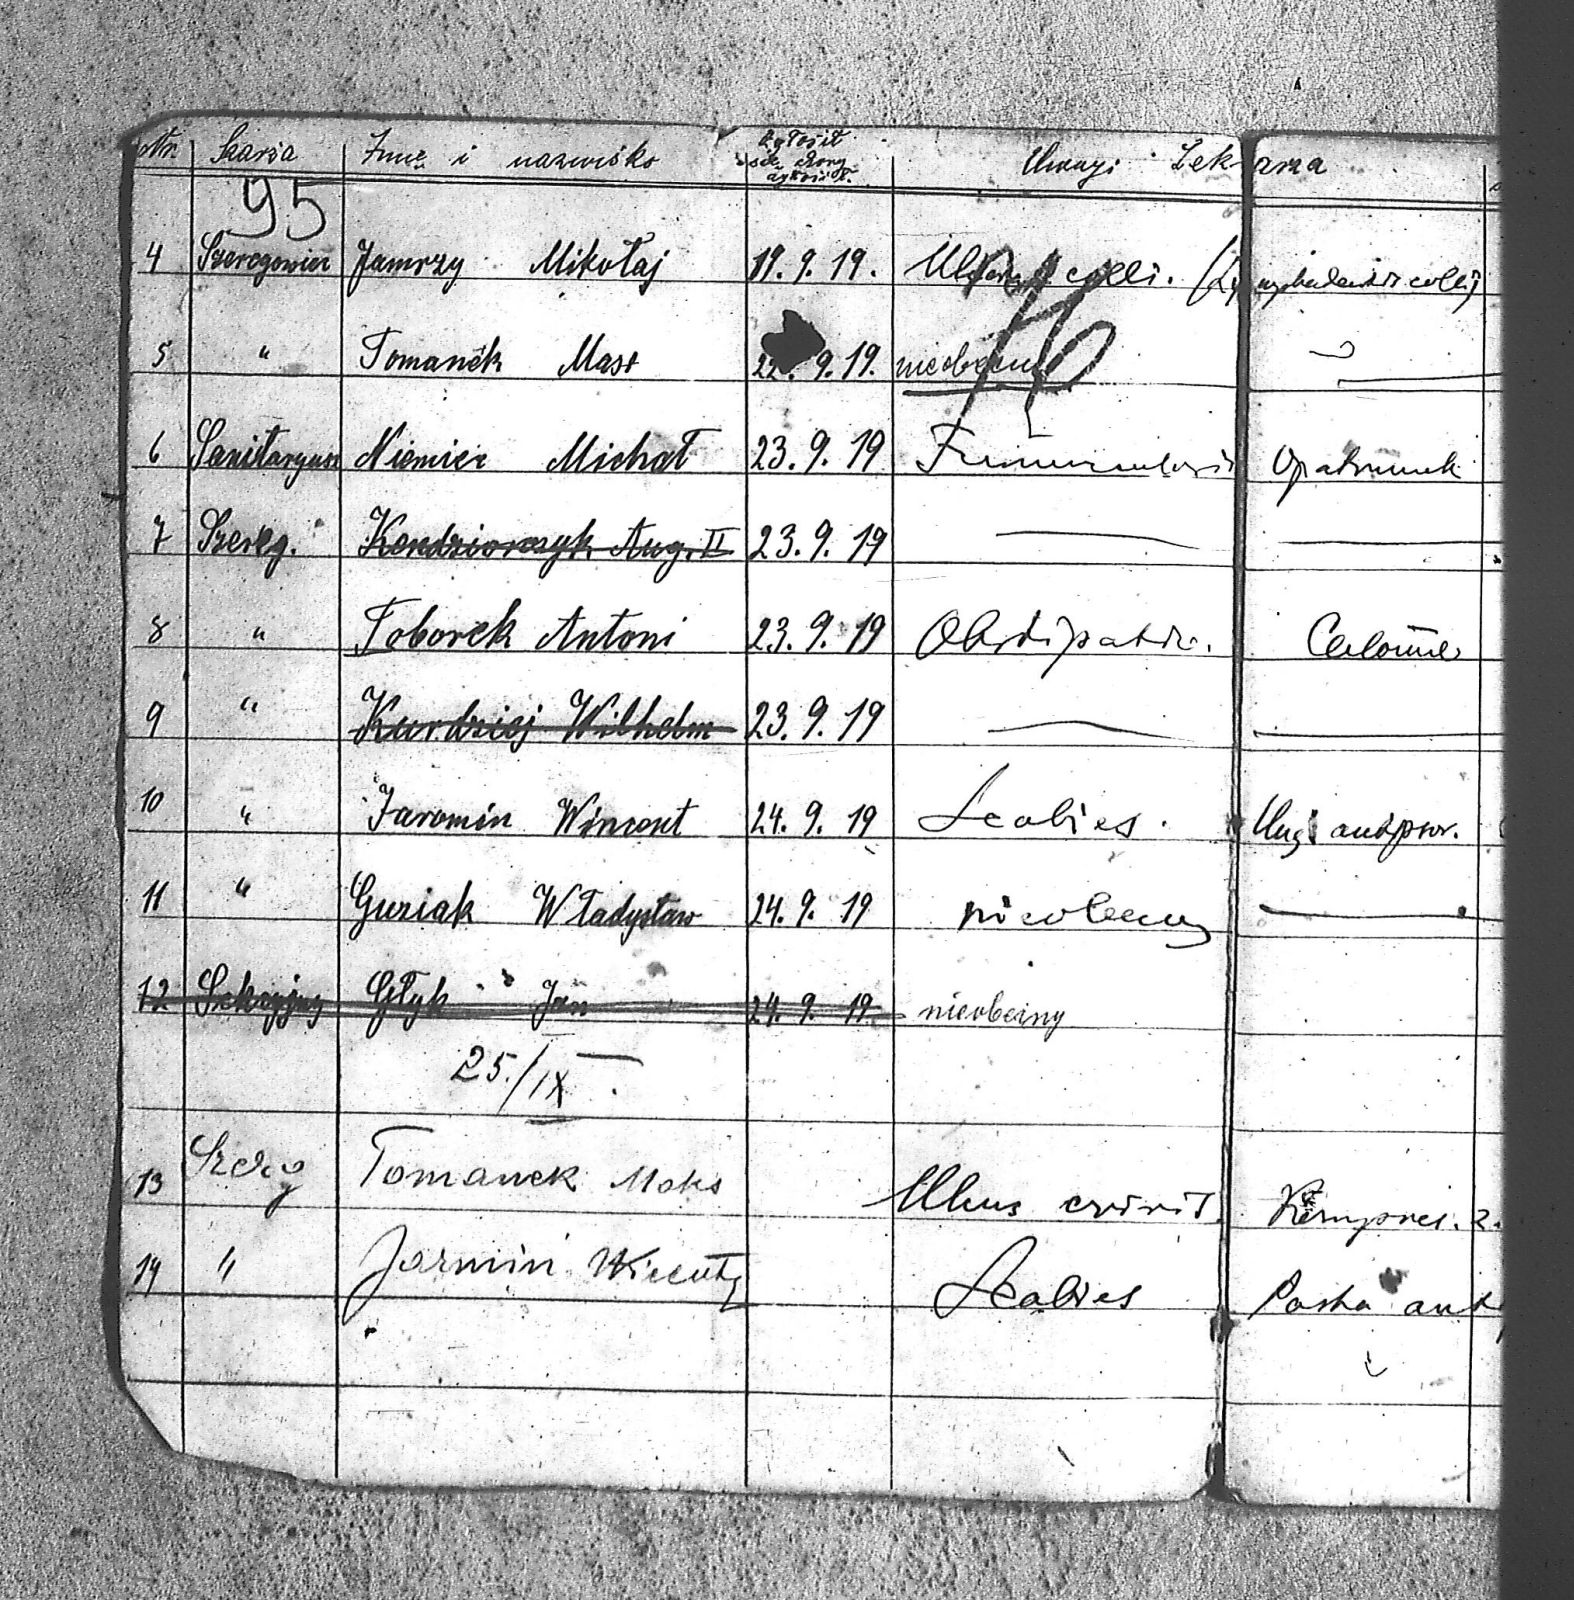 Nr. Szarża Imię i nazwisko zgłosił się chory Uwagi Lekarza
95
4 Szeregowiec Jamrzy Mikołaj 19. 9. 19. colli.
5 " Tomanek Max 22. 9. 19. nieobecny
6 Sanitaryusz Niemiec Michał 23. 9. 19 Opatrunek
7 Szereg. Kendziorczyk Aug. II 23. 9. 19
8 " Toborek Antoni 23. 9. 19 Obstipatio.
9 " Kurdziej Wilhelm 23. 9. 19
10 " Jaromin Wincent 24. 9. 19 Scabies.
11 " Guziak Władysław 24. 9. 19 nieobecny
12 Sekcyjny Głyk Jan 24. 9. 19 nieobecny
25./IX.
13 Szereg Tomanek Maks Ulcus
14 " Jarmin Wicenty Scabies Pasta